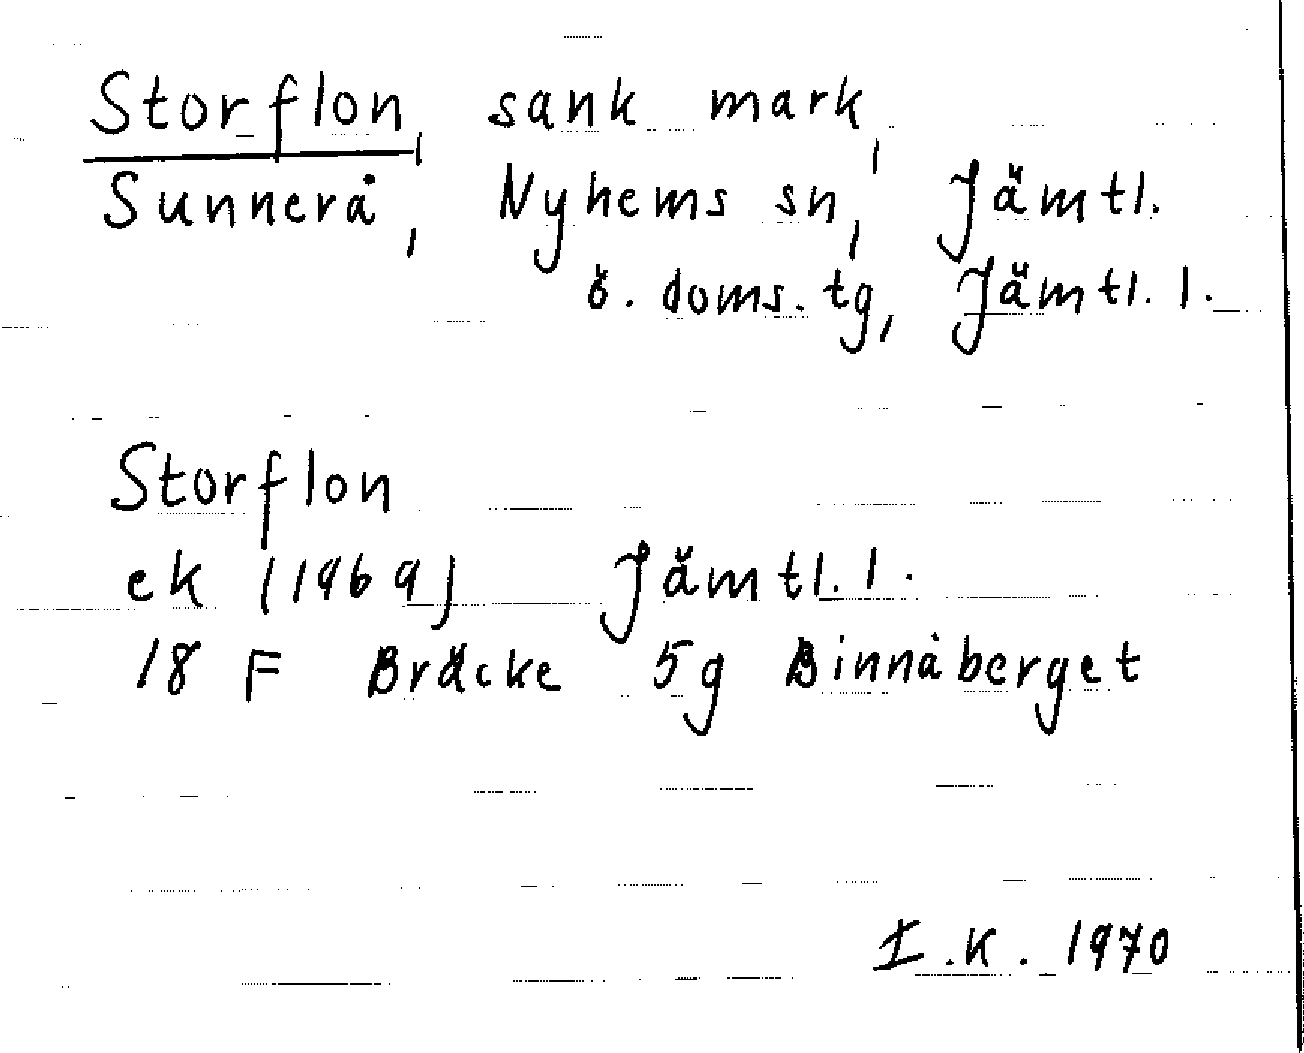 Storflon, sank mark,
Sunnerå, Nyhems sn, Jämtl.
ö. doms. tg, Jämtl. l.
Storflon
ek (1969) Jämtl. l.
18 F Bräcke 5g Binnåberget
I.K. 1970